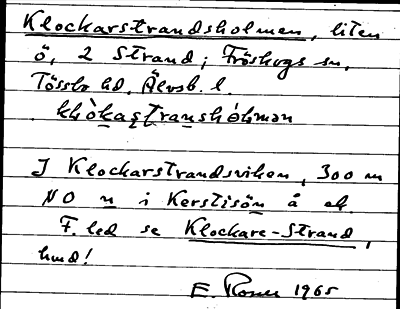 Klockarstrandsholmen, liten
ö, 2 Strand; Fröskogs sn,
Tössbo hd, Älvsb. l.
I Klockarstrandsviken, 300 m
NO n i Kerstisön å ek.
F. led se Klockare-Strand,
hmd!
E. 1965